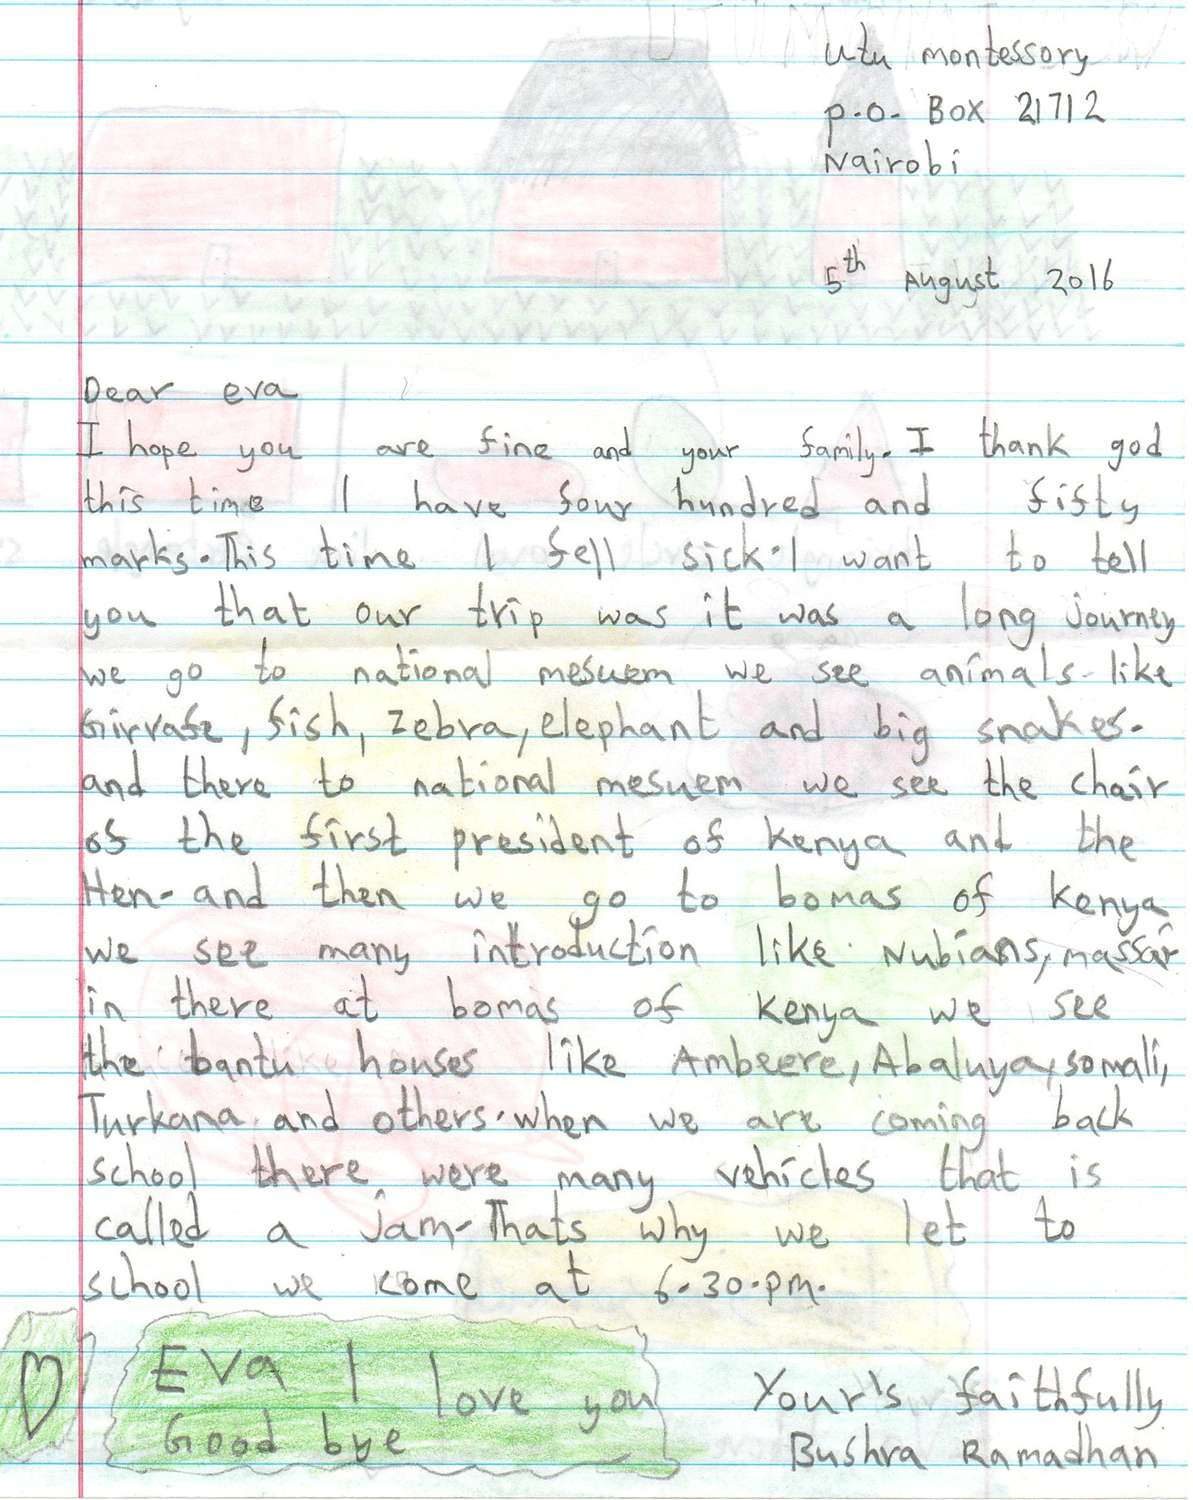 Utu montessory
p.o. Box 21712
Nairobi
5th August 2016
Dear eva
I hope you are fine and your family. I thank god
this time I have four hundred and fifty
marks. This time I fell sick. I want to tell
you that our trip was it was a long journey
we go to national mesuem we see animals like
Girrafe, fish, zebra, elephant and big snakes.
and there to national mesuem we see the chair
of the first president of kenya and the
Hen- and then we go to bomas of kenya
we see many introduction like Nubians, massai
in there at bomas of kenya we see
the bantu houses like Ambeere, Abaluya, somali,
Turkana and others. when we are coming back
school there were many vehicles that is
called a jam- Thats why we let to
school we come at 6.30.pm.
Eva I love you
Good bye
Your's faithfully
Bushra Ramadhan